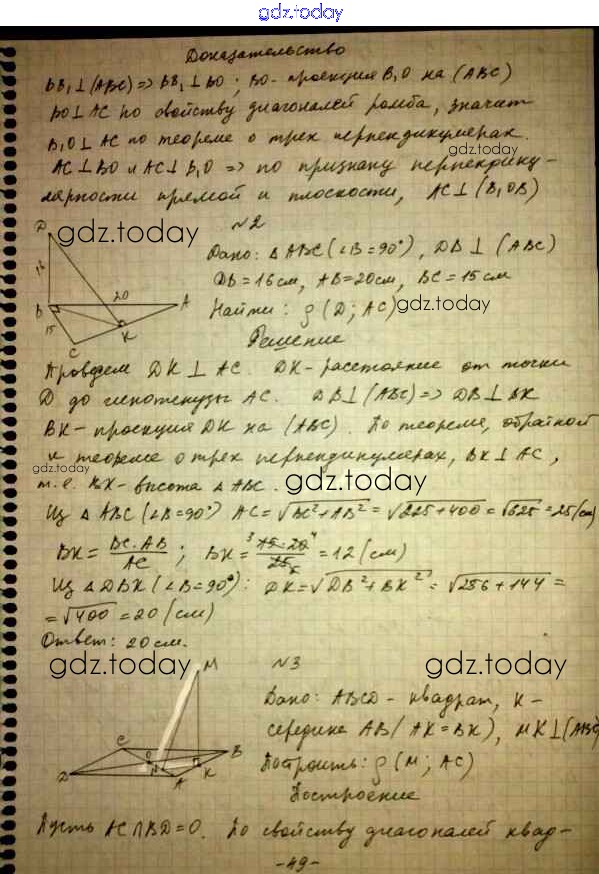 gdz.today
Доказательство
BB₁⊥(ABC)=> BB₁⊥BO; BO- проекция B₁O на (ABC)
BO⊥AC по свойству диагоналей ромба, значит
B₁O⊥AC по теореме о трех перпендикулярах.
gdz.today
AC⊥BO и AC⊥B₁O => по признаку перпендику-
лярности прямой и плоскости, AC⊥(B₁OB)
gdz.today
№2
D
16
B
20
A
15
K
C
Дано: △ABC(∠B=90°), DB⊥(ABC)
DB=16см, AB=20см, BC=15см
Найти: ρ(D; AC)
gdz.today
Решение
Проведем DK⊥AC. DK-расстояние от точки
D до гипотенузы AC. DB⊥(ABC)=> DB⊥BK
BK-проекция DK на (ABC). По теореме, обратной
к теореме о трех перпендикулярах, BK⊥AC,
gdz.today
т.е. BK-высота △ABC.
gdz.today
Из △ABC(∠B=90°) AC=√BC²+AB²=√225+400=√625=25(см)
BK= BC·AB/AC; BK= 15·20/25=12(см)
3 4 5
Из △DBK(∠B=90°): DK=√DB²+BK²=√256+144=
=√400=20(см)
Ответ: 20см.
gdz.today
gdz.today
№3
M
C
B
O
N
K
D
A
Дано: ABCD-квадрат, K-
середина AB(AK=BK), MK⊥(ABC)
Построить: ρ(M; AC)
Построение
Пусть AC∩BD=O. По свойству диагоналей квад-
-49-